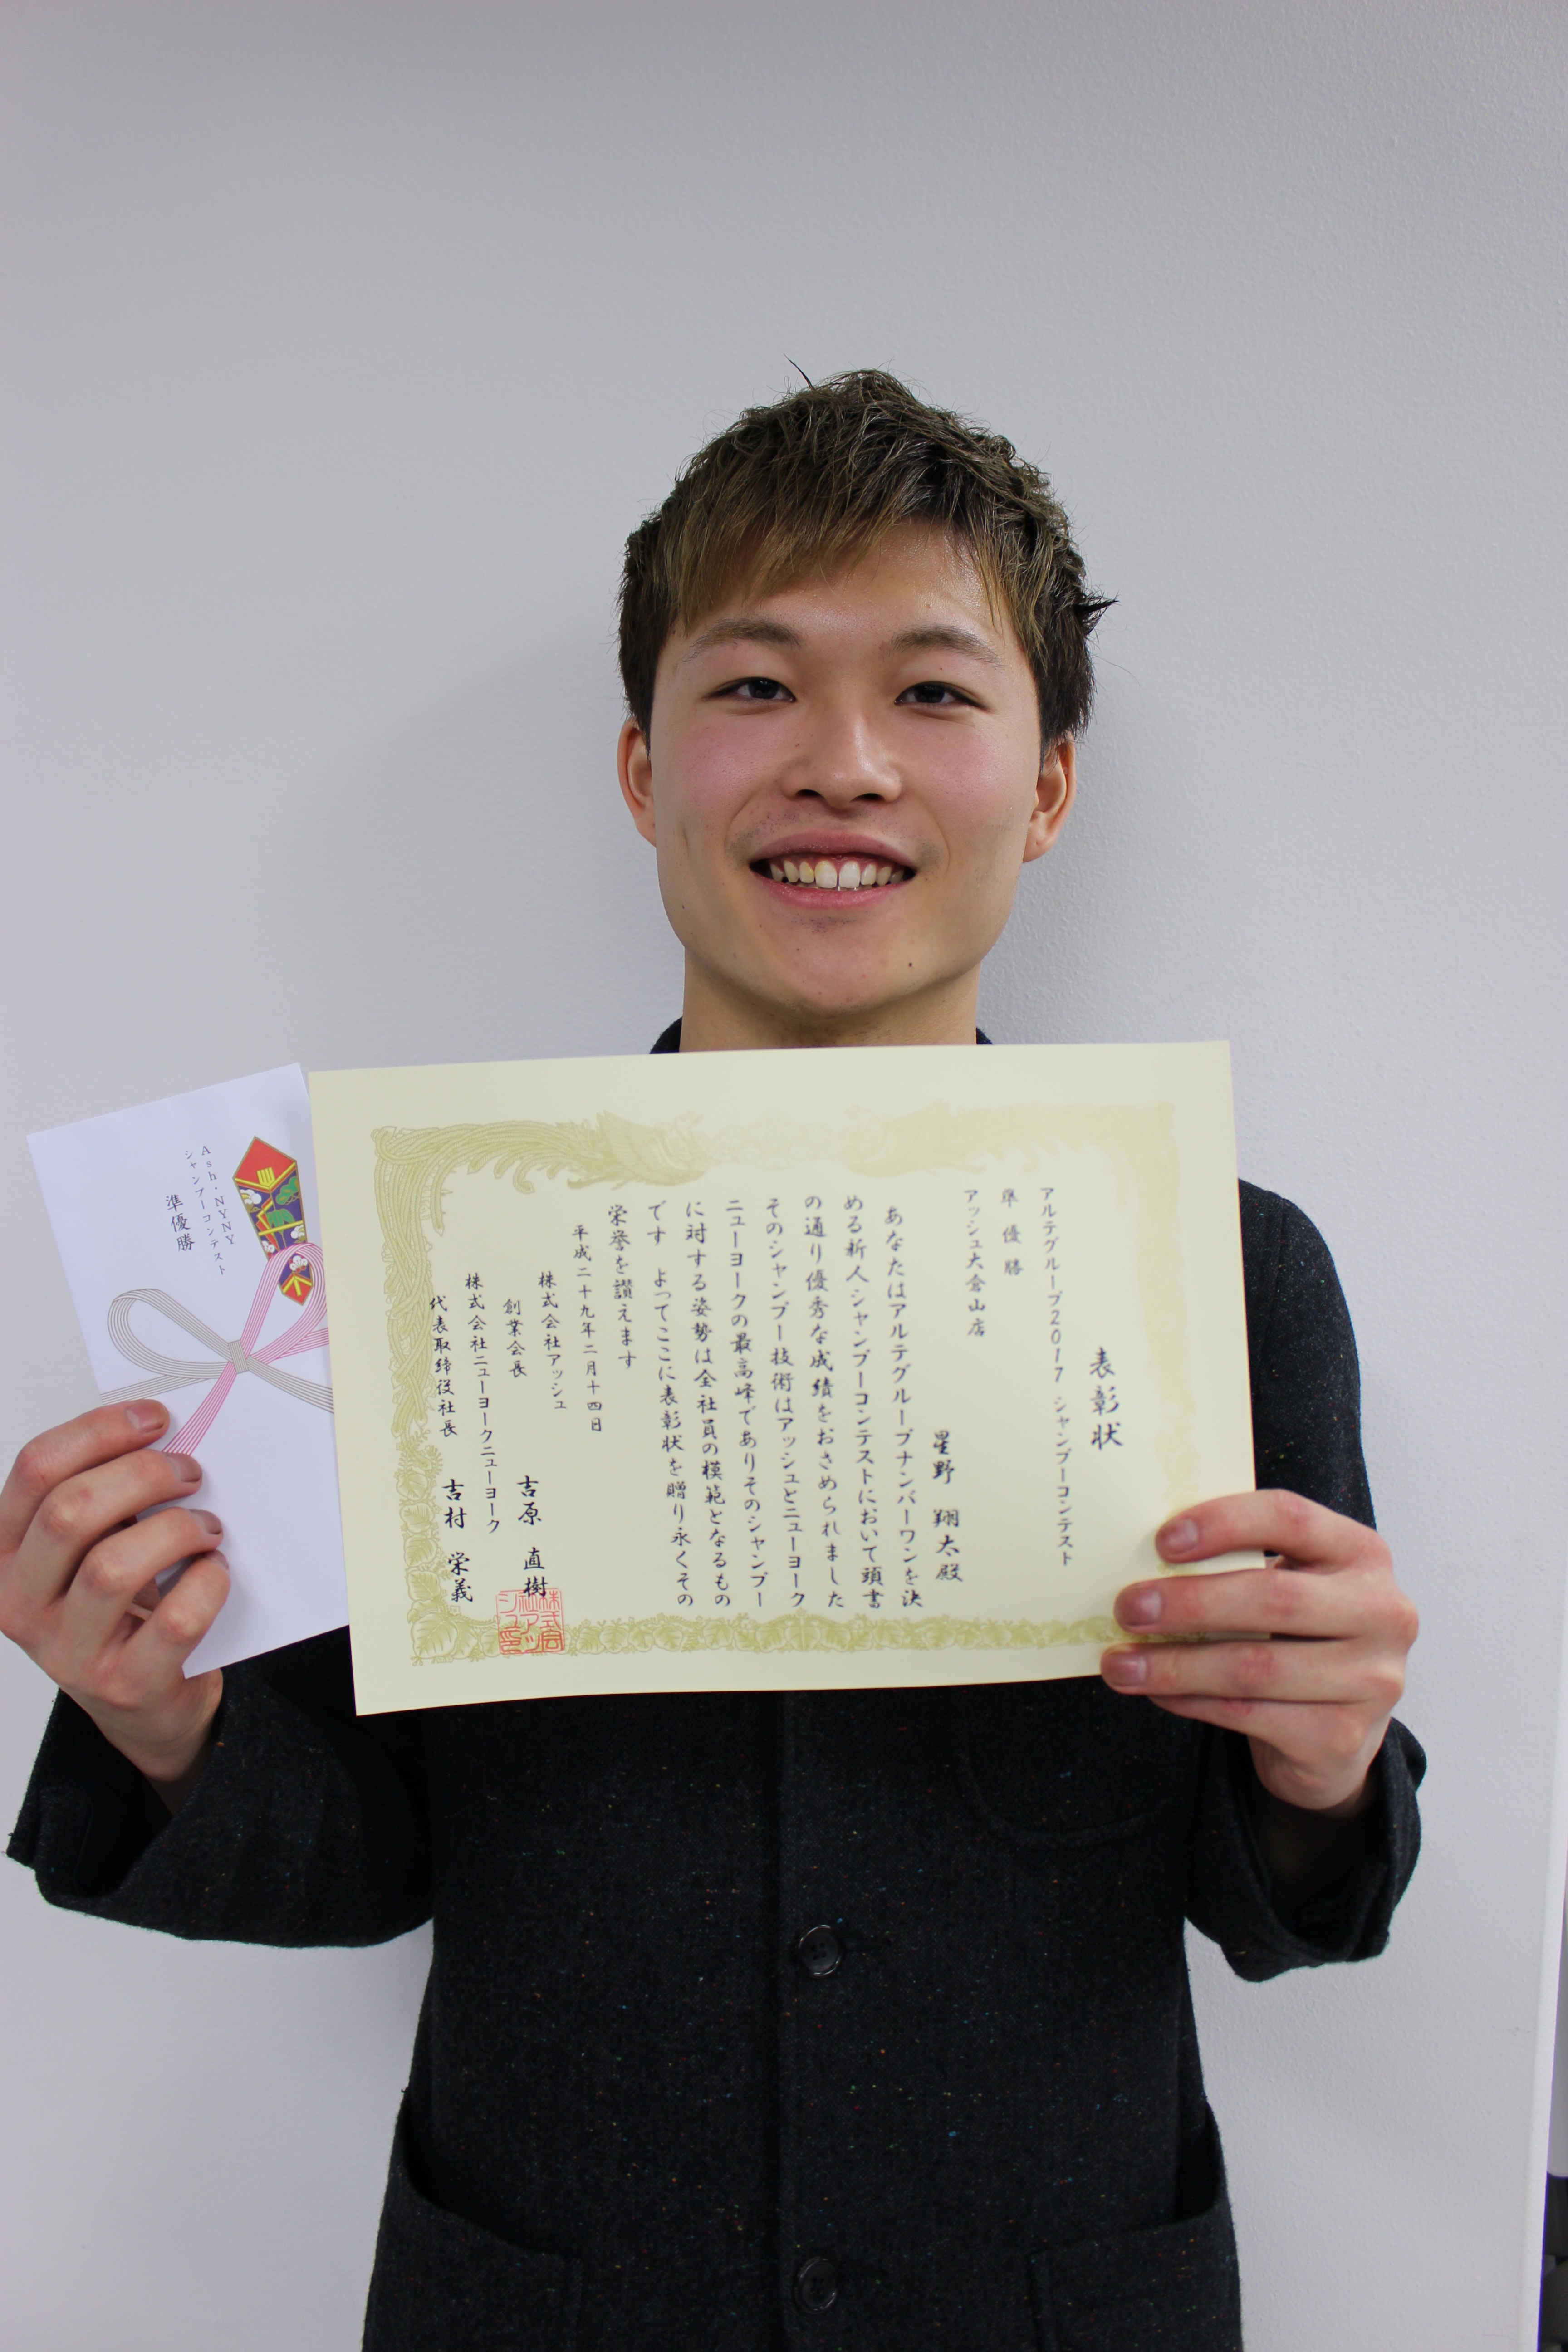 表彰状
アルテグループ2017 シャンプーコンテスト
準優勝
アッシュ大倉山店
星野 翔太殿
あなたはアルテグループナンバーワンを決
める新人シャンプーコンテストにおいて頭書
の通り優秀な成績をおさめられました
そのシャンプー技術はアッシュとニューヨーク
ニューヨークの最高峰でありそのシャンプー
に対する姿勢は全社員の模範となるもの
です よってここに表彰状を贈り永くその
栄誉を讃えます
平成二十九年二月十四日
株式会社アッシュ
創業会長 吉原 直樹
株式会社ニューヨークニューヨーク
代表取締役社長 吉村 栄義
株式会社アッシュ印
Ash・NYNY
シャンプーコンテスト
準優勝